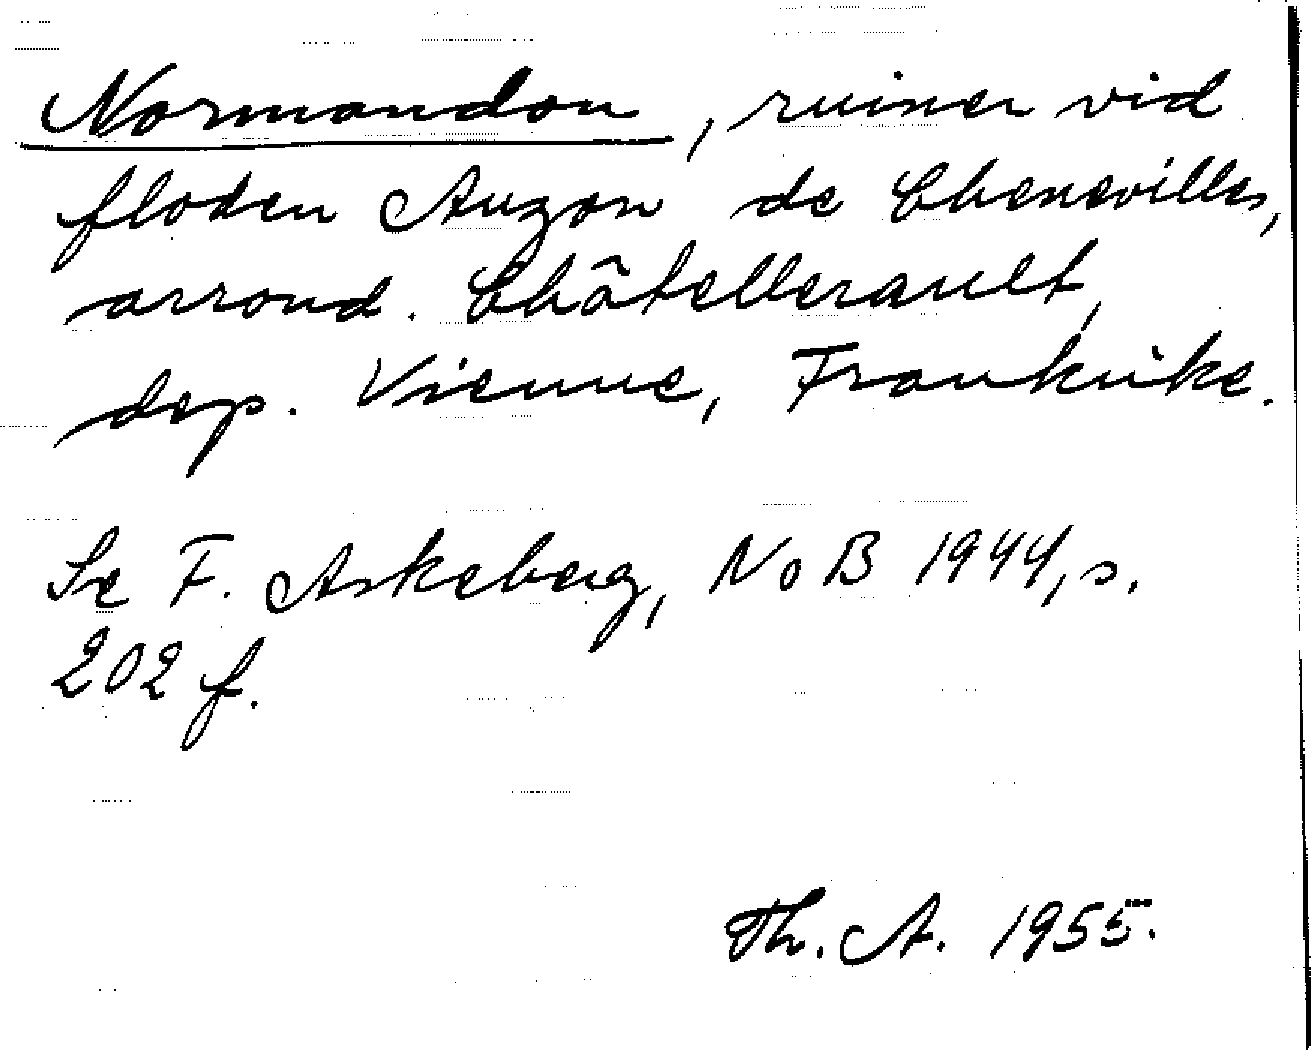 Normandou, ruiner vid
floden Auzon de Chenevilles,
arrond. Châtellerault,
dep. Vienne, Frankrike.
Se F. Askeberg, NoB 1944, s.
202 f.
Th. A. 1955.